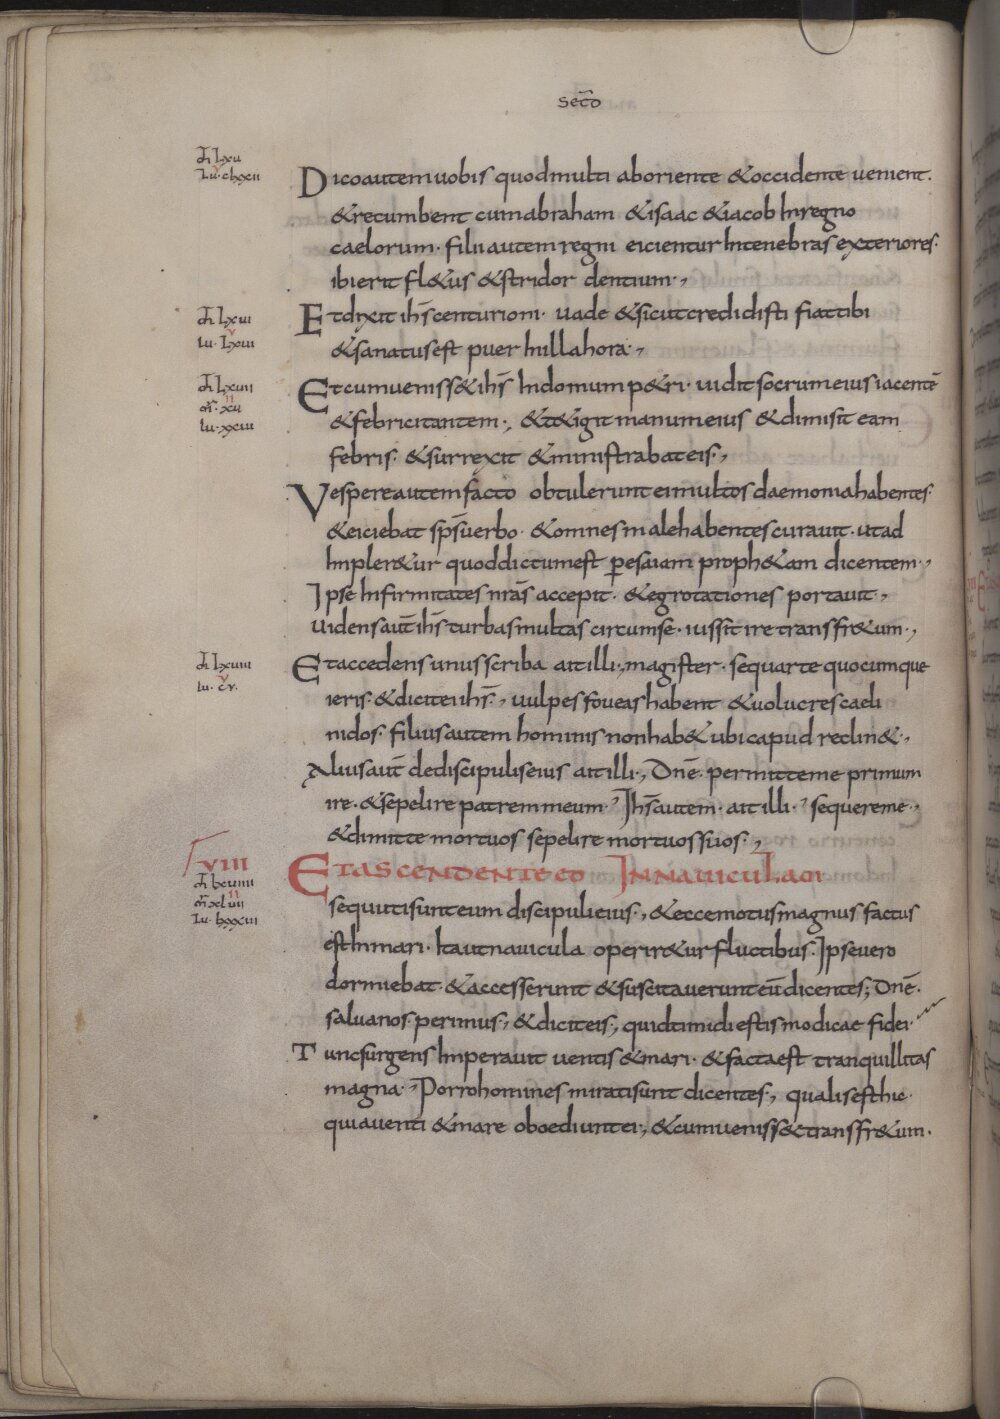 sec̄d
m̄ lxu
Dico autem uobis quod multi ab oriente & occidente uenient.
lu· clxxii
& recumbent cum abraham & isaac & iacob In regno
caelorum· filii autem regni eicientur In tenebras exteriores·
ibi erit fl&us & stridor dentium·,
m̄ lxui
Et dixit ih̄s centurioni· uade & sicut credidisti fiat tibi
lu· lxui
v
& sanatus est puer In illa hora·,
m̄ lxuii
Et cum ueniss& ih̄s In domum p&ri· uidit socrum eius iacentē
m̄r· xu
ii
& febricitantem·, & t&igit manum eius & dimisit eam
lu· xxui
febris· & surrexit & ministrabat eis·,
Vespere autem facto obtulerunt ei multos daemonia habentes·
& eiciebat sp̄s uerbo· & omnes male habentes curauit· ut ad
Impler&ur quod dictum est per esaiam proph&am dicentem·,
Ipse Infirmitates nr̄as accepit· & egrotationes portauit·,
uidens aut̄ ih̄s turbas multas circum se· iussit ire trans fr&um·,
m̄ lxuiii
Et accedens unus scriba ait illi·, magister· sequar te quocumque
lu· cv·
v
ieris· & dicit ei ih̄s·, uulpes foueas habent & uolucres caeli
nidos· filius autem hominis non hab& ubi caput reclin&·,
Alius aut̄ de discipulis eius ait illi·, Dn̄e· permitte me primum
ire· & sepelire patrem meum·, Ih̄s autem· ait illi·, sequere me·,
& dimitte mortuos sepelire mortuos suos·,
VIII
ET ASCENDENTE EO IN NAUICULAM
m̄ lxuiiii
m̄r xluii
ii
sequuti sunt eum discipuli eius·, & ecce motus magnus factus
lu· lxxxiii
est In mari· Ita ut nauicula operir&ur fluctibus· Ipse uero
dormiebat· & accesserunt & suscitauerunt eū dicentes; Dn̄e·
salua nos· perimus·, & dicit eis·, quid timidi estis modicae fidei·
Tunc surgens Imperauit uentis & mari· & facta est tranquillitas
magna·, Porro homines mirati sunt dicentes·, qualis est hic·
quia uenti & mare oboediunt ei·, & cum ueniss& trans fr&um·